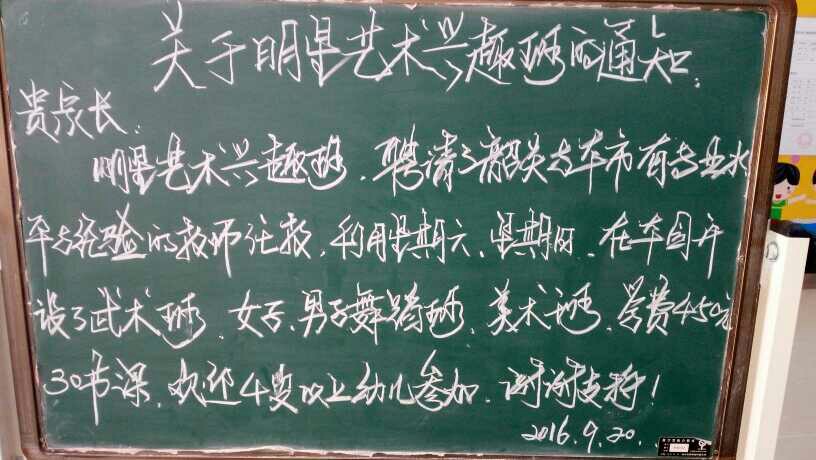 关于明星艺术兴趣班的通知:
贵家长:
明星艺术兴趣班,聘请了韶关与本市有专业水
平与经验的教师任教,利用星期六、星期日、在本园开
设了武术班、女子、男子舞蹈班、美术班、学费450元
30节课,欢迎4岁以上幼儿参加,谢谢支持!
2016.9.20.